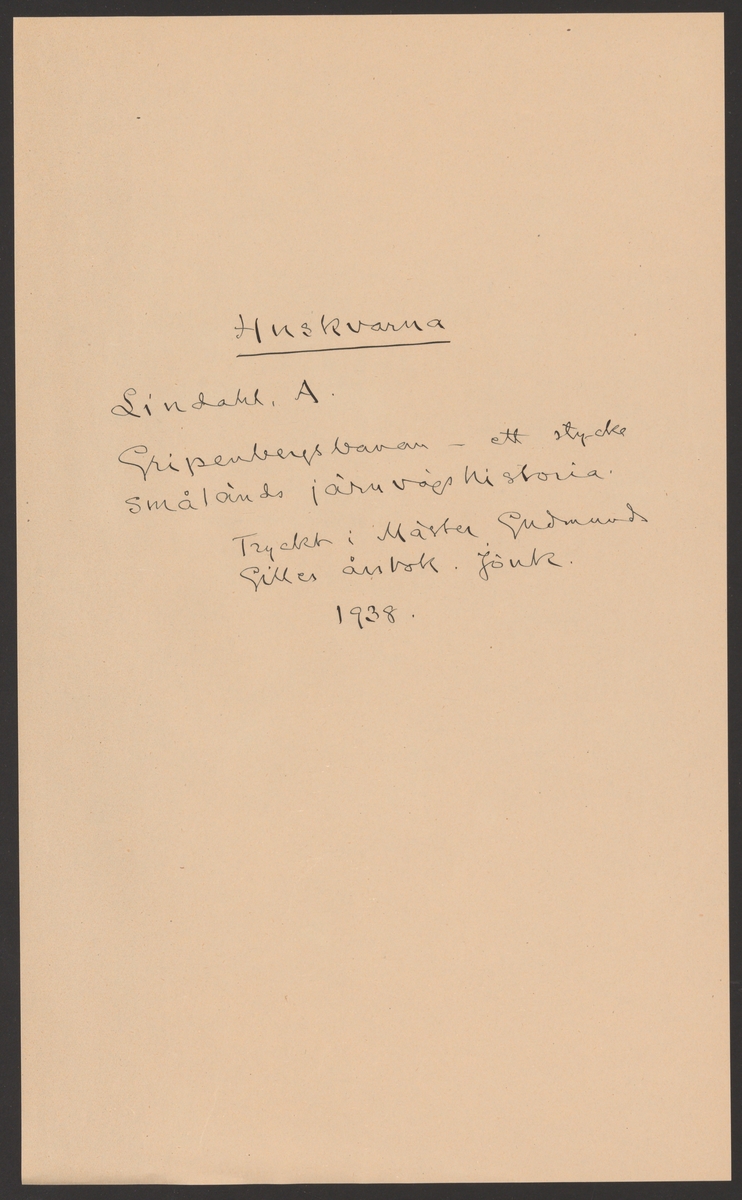 Huskvarna
Lindahl, A.
Gripenbergsbanan - ett stycke
småländs järnvägshistoria.
Tryckt i Mäster Gudmunds
Gilles årsbok. Jönk.
1938.